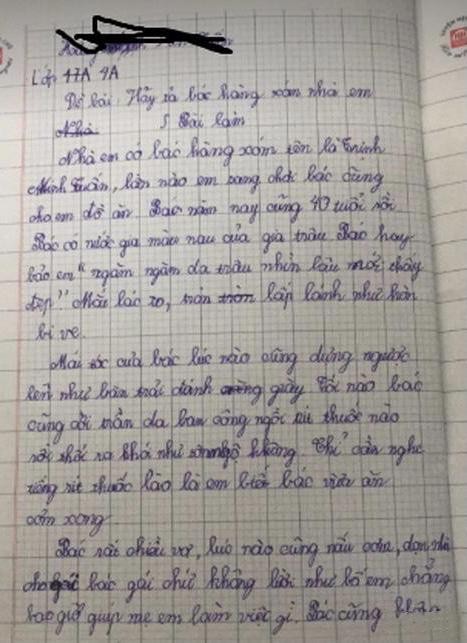 Lớp 4A
Đề bài: Hãy tả bác hàng xóm nhà em
Bài làm
Nhà em có bác hàng xóm tên là Trịnh
Minh Tuấn, lần nào em sang chơi bác cũng
cho em đồ ăn. Bác năm nay cũng 40 tuổi rồi
Bác có nước gia màu nau của gia trâu Bác hay
bảo em "ngăm ngăm da trâu nhìn lâu mới thấy
đẹp" Mắt bác to, tròn lấp lánh như hòn
bi ve.
Mái tóc của bác lúc nào cũng dựng ngược
lên như bàn trải đánh giày Tối nào bác
cũng cởi trần da ban công ngồi rít thuốc nào
rồi thổi ra khói như khổng. Chỉ cần nghe
tiếng rít thuốc lào là em biết bác vừa ăn
cơm xong.
Bác rất chiều vợ, lúc nào cũng nấu cơm, dọn nhà
cho bác gái chứ không lười như bố em chẳng
bao giờ giup mẹ em làm việc gì. Bác cũng